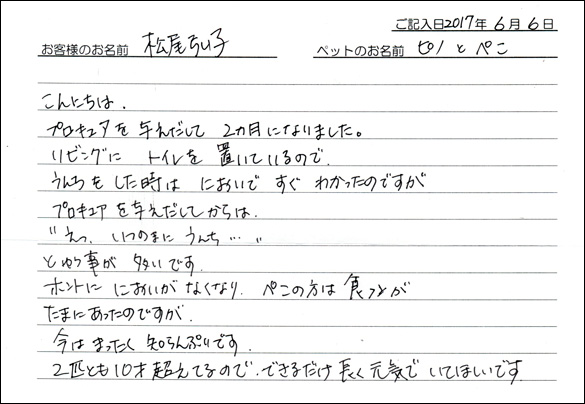 ご記入日2017年 6月 6日
お客様のお名前 松尾ちい子 ペットのお名前 ピノ と ぺこ
こんにちは.
プロキュアを 与えだして 2カ月になりました。
リビングに トイレを 置いているので.
うんちをした時は においで すぐ わかったのですが
プロキュアを与えだしてからは.
"えっ、いつのまに うんち…"
とゆう事が 多いです.
ホントに においがなくなり. ぺこの方は 食フンが
たまにあったのですが.
今は まったく 知らんぷりです.
2匹とも10才超えてるので.できるだけ 長く元気で いてほしいです